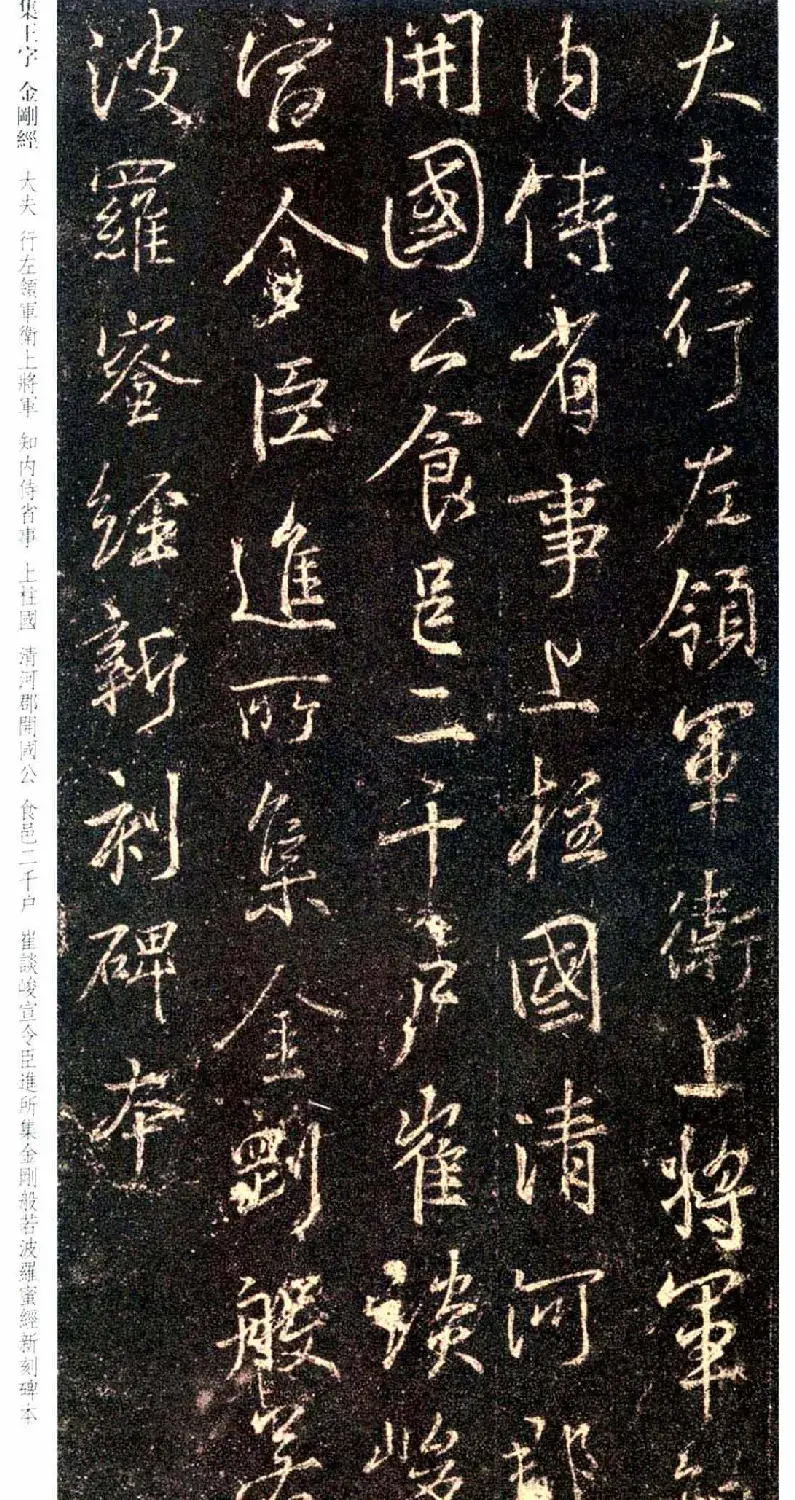 大夫行左領軍衛上將軍知
内侍省事上柱國清河郡
開國公食邑二千户崔談峻
宣令臣進所集金剛般若
波羅蜜經新刻碑本
集王字 金剛經 大夫 行左領軍衛上將軍 知内侍省事 上柱國 清河郡開國公 食邑二千户 崔談峻宣令臣進所集金剛般若波羅蜜經新刻碑本